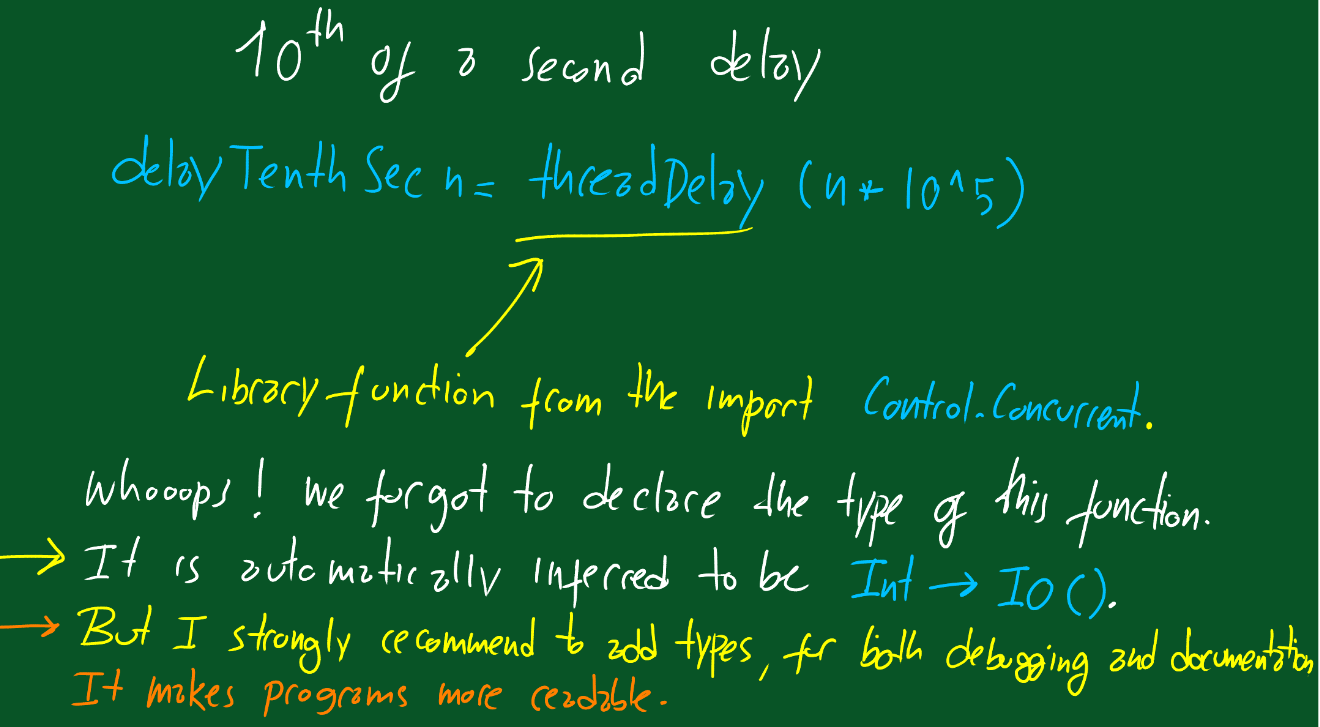 10th of a second delay
delayTenthSec n = threadDelay (n * 10^5)
Library function from the import Control.Concurrent.
Whooops! we forgot to declare the type of this function.
→ It is automatically inferred to be Int → IO ().
→ But I strongly recommend to add types, for both debugging and documentation
It makes programs more readable.